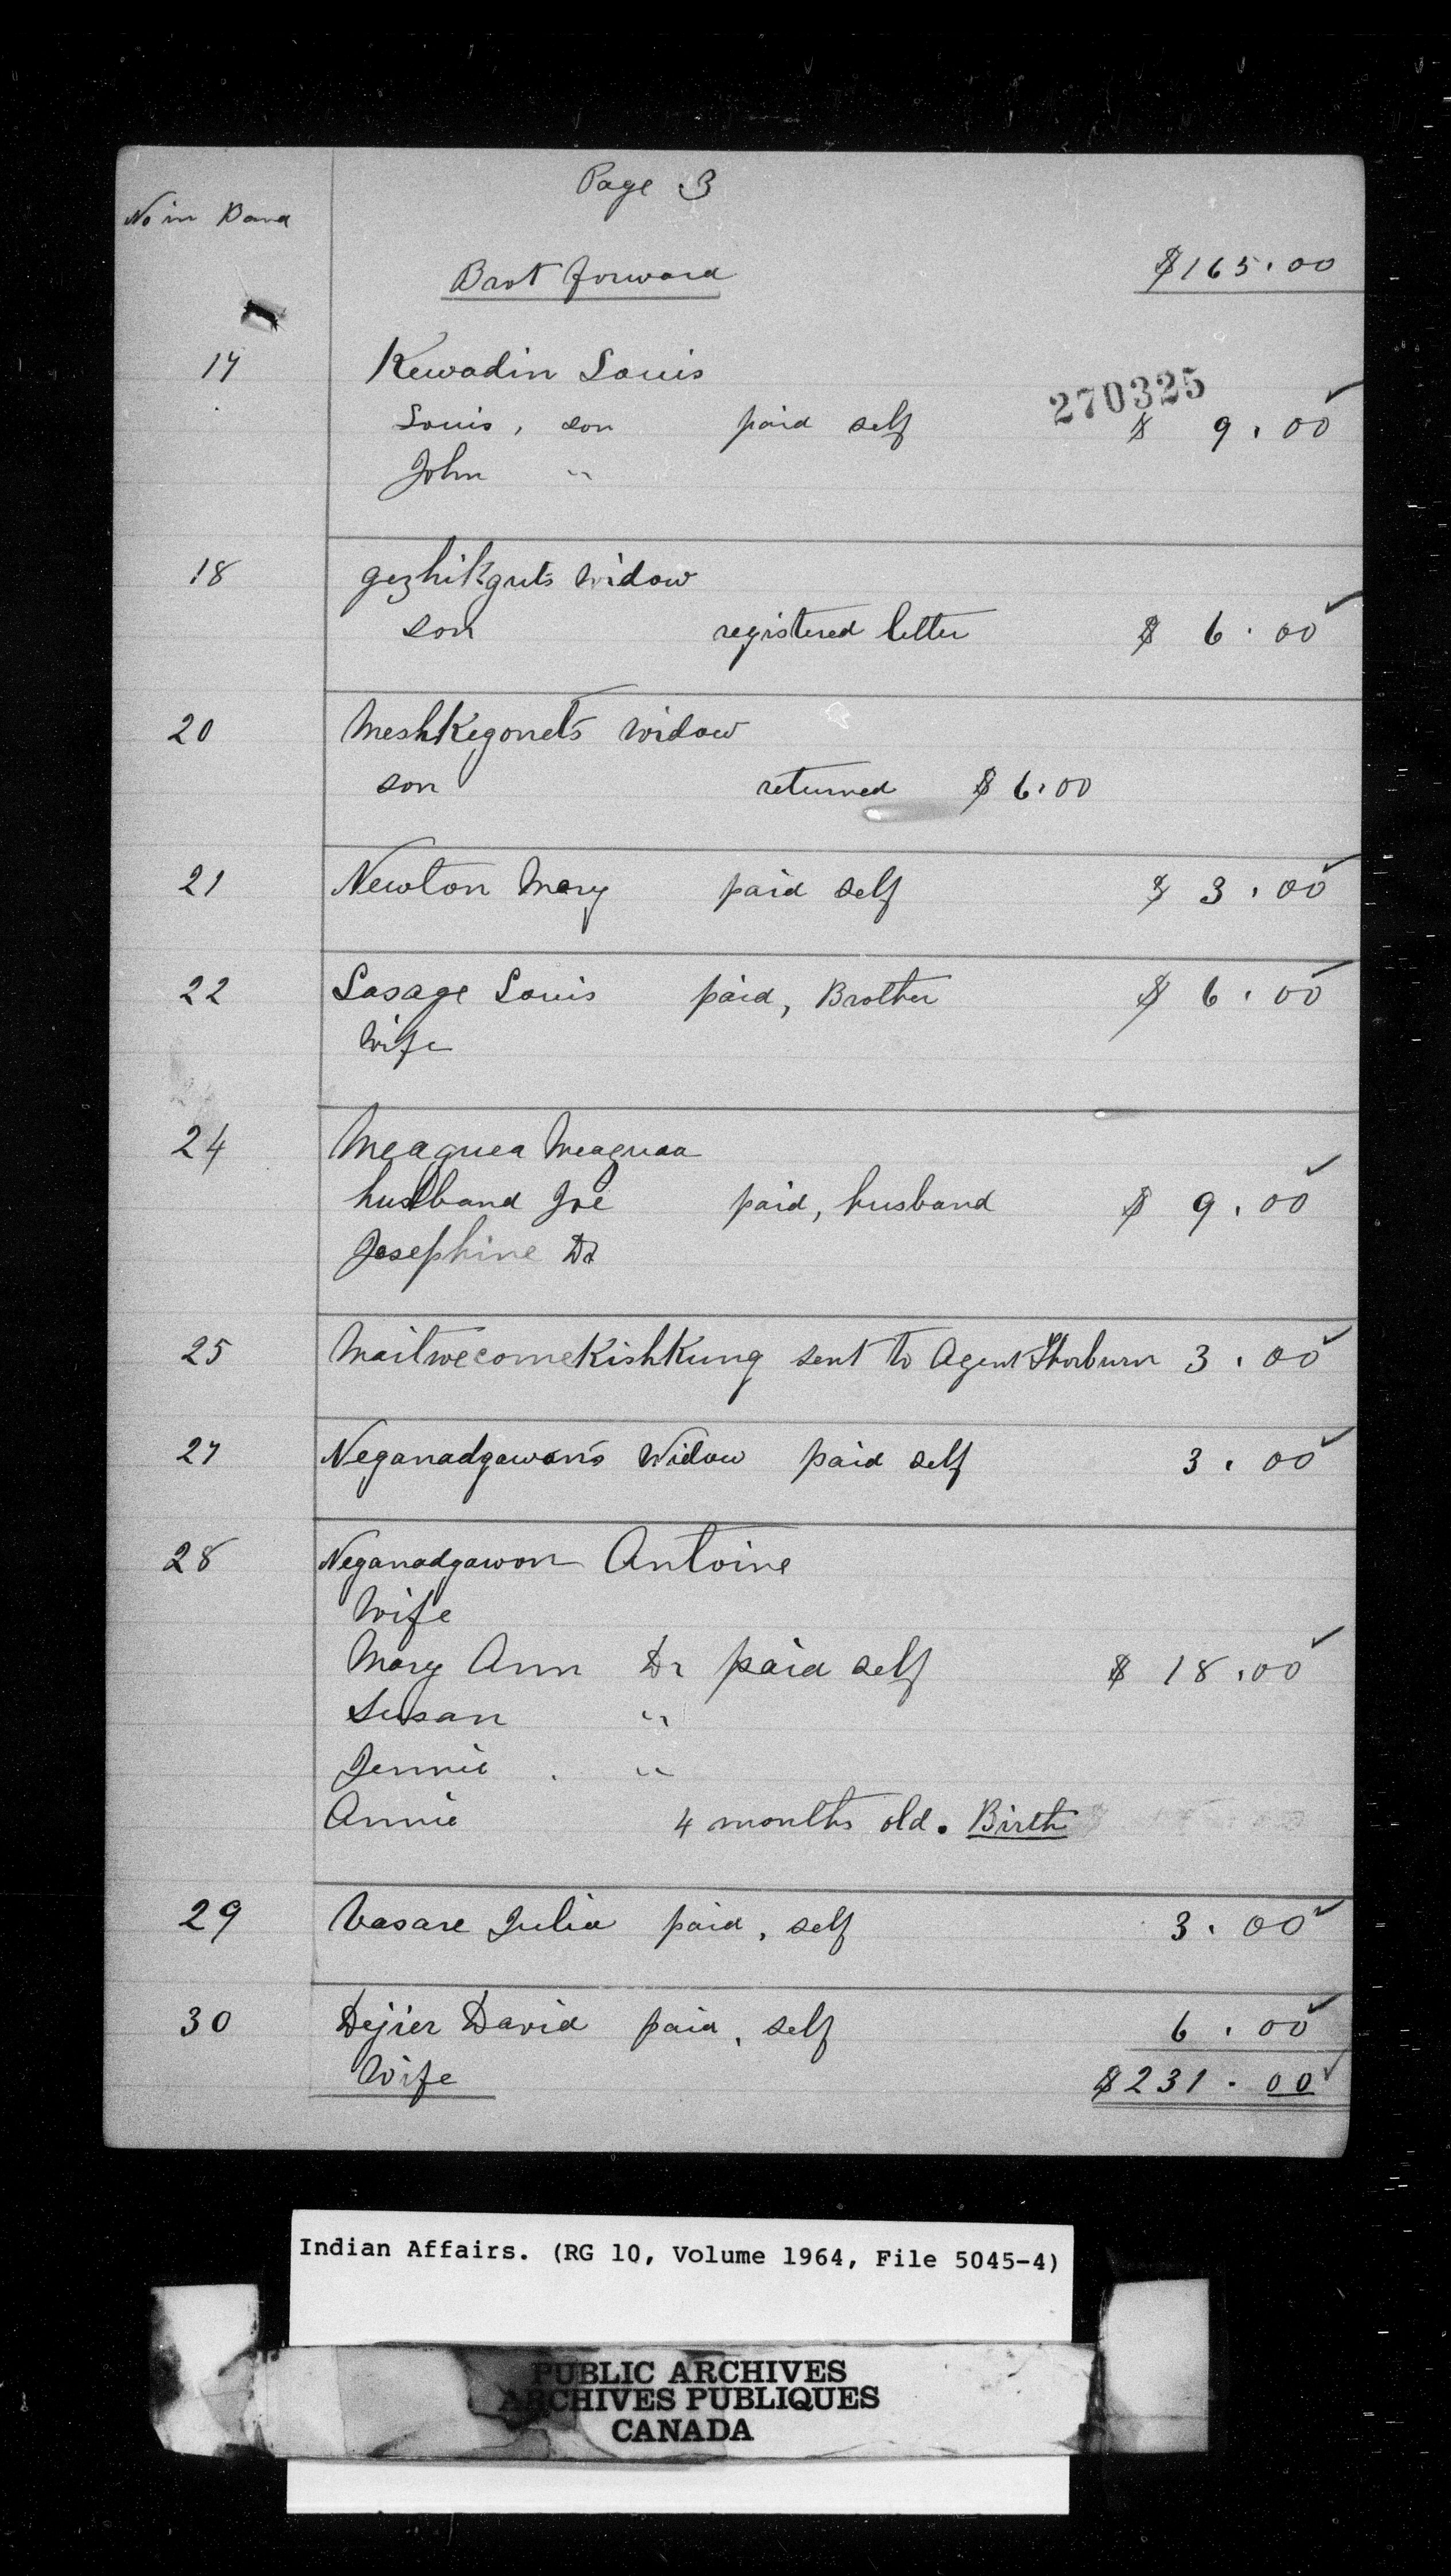 Page 3
No in Band
Brot forward $165.00
17 Kewadin Louis
270325
Louis, son paid self $ 9.00
John "
18 gezhikguts widow
son registered letter $ 6.00
20 Meshkegonets widow
son returned $ 6.00
21 Newton Mary paid self $ 3.00
22 Sasage Louis paid, Brother $ 6.00
Wife
24 Meaguea Meaguaa
husband Joe paid, husband $ 9.00
Josephine Dr
25 MaitwecomeKishKung sent to Agent Thorburn 3.00
27 Neganadgawon's Widow paid self 3.00
28 Neganadgawon Antoine
Wife
Mary Ann Dr paid self $ 18.00
Susan "
Jennie "
Annie 4 months old. Birth
29 Vasare Julia paid, self 3.00
30 Dejier David paid, self 6.00
Wife $231.00
Indian Affairs. (RG 10, Volume 1964, File 5045-4)
PUBLIC ARCHIVES
ARCHIVES PUBLIQUES
CANADA